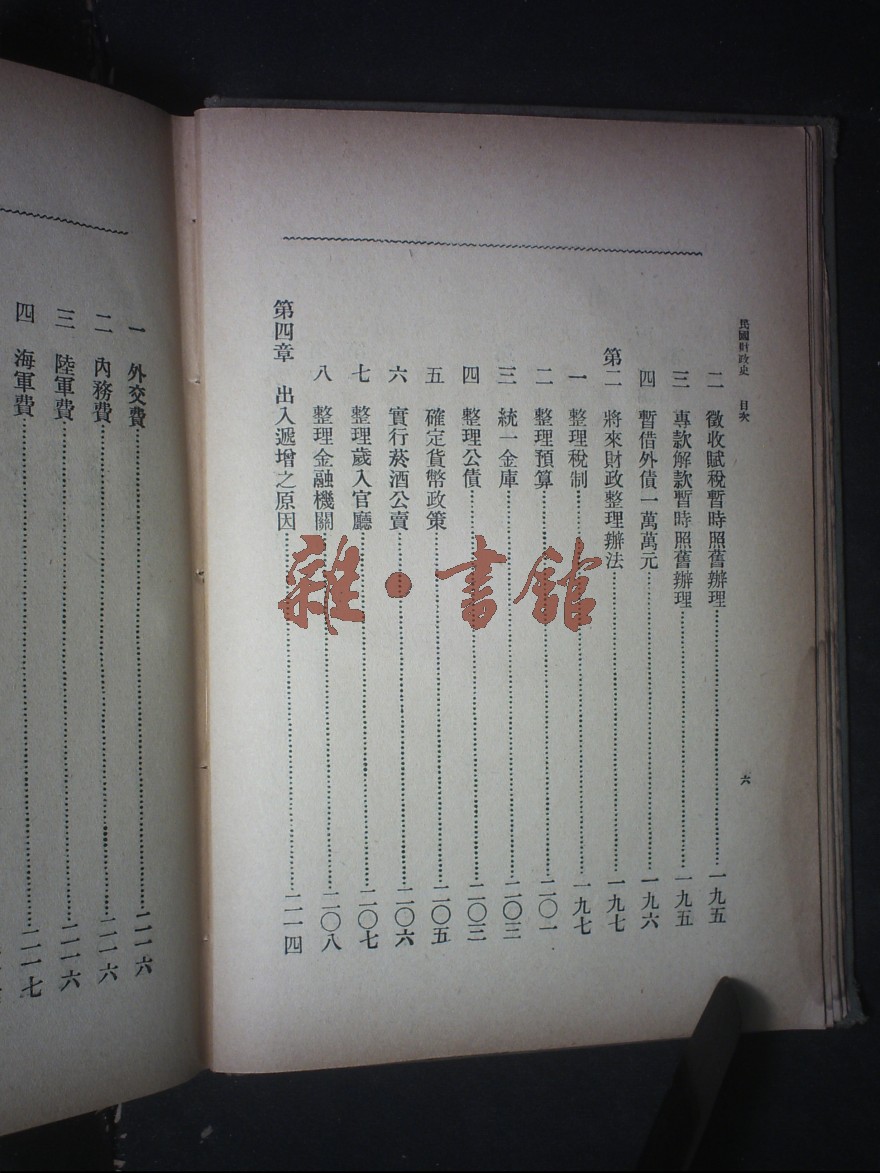 民國財政史 目次 六
二 徵收賦稅暫時照舊辦理……一九五
三 專款解款暫時照舊辦理……一九五
四 暫借外債一萬萬元……一九六
第二 將來財政整理辦法……一九七
一 整理稅制……一九七
二 整理預算……二〇一
三 統一金庫……二〇三
四 整理公債……二〇三
五 確定貨幣政策……二〇五
六 實行菸酒公賣……二〇六
七 整理歲入官廳……二〇七
八 整理金融機關……二〇八
第四章 出入遞增之原因……二一四
一 外交費……二一六
二 內務費……二一六
三 陸軍費……二一六
四 海軍費……二一七
雜·書館